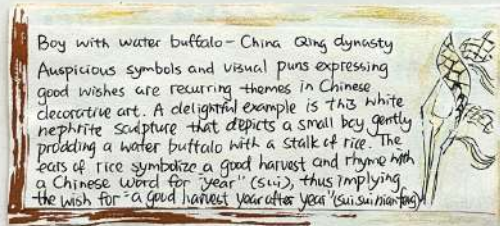 Boy with water buffalo - China Qing dynasty
Auspicious symbols and visual puns expressing
good wishes are recurring themes in Chinese
decorative art. A delightful example is this white
nephrite sculpture that depicts a small boy gently
prodding a water buffalo with a stalk of rice. The
ears of rice symbolize a good harvest and rhyme with
a Chinese word for "year" (sui), thus implying
the wish for "a good harvest year after year" (sui sui nian feng)